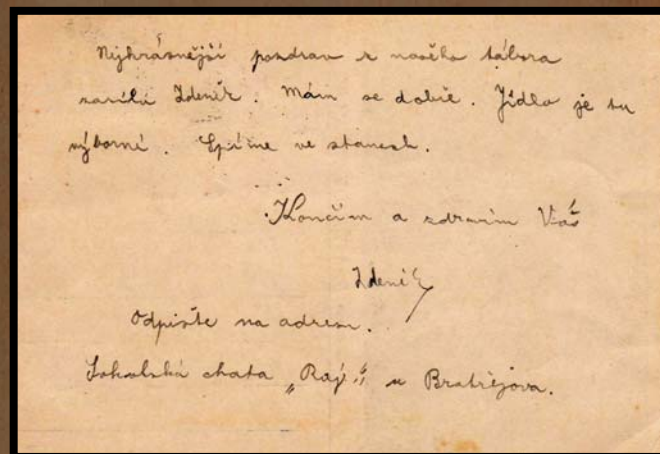 Nejkrásnější pozdrav z našeho tábora
zasílá Zdeněk. Mám se dobře. Jídlo je tu
výborné. Spíme ve stanech.
Končím a zdravím Vás
Zdeněk
Odpište na adresu.
Sokolská chata „Ráj" u Bratřejova.